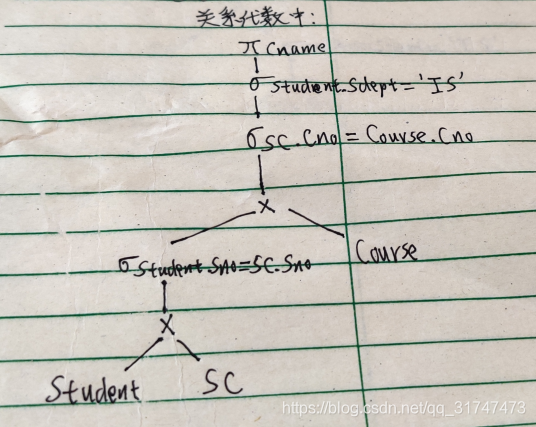 关系代数中:
π Cname
σ Student.Sdept = 'IS'
σ SC.Cno = Course.Cno
×
σ Student.Sno=SC.Sno
Course
×
Student
SC
https://blog.csdn.net/qq_31747473